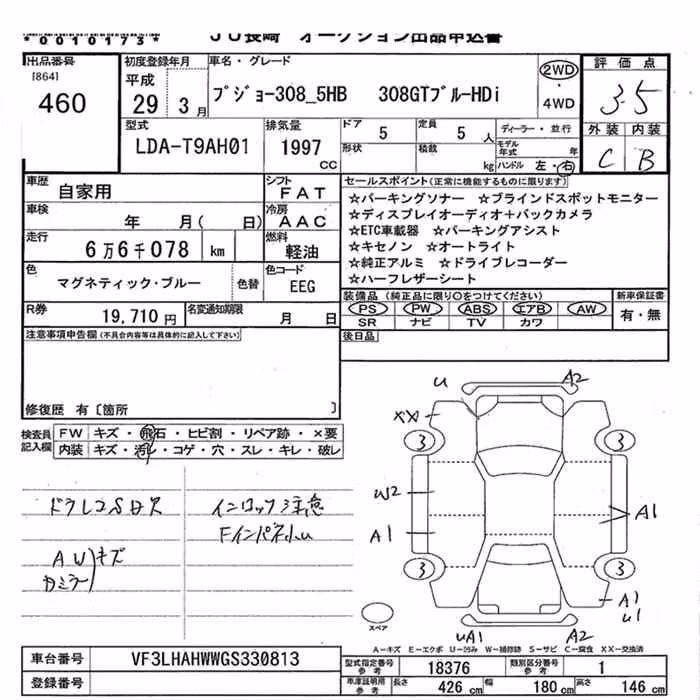 *0010173*
JU長崎 オークション出品申込書
出品番号 [864] 460
初度登録年月 平成 29年 3月
車名・グレード プジョー308_5HB 308GTブルーHDi
2WD・4WD
評価点 3.5
外装 C 内装 B
型式 LDA-T9AH01
排気量 1997 CC
ドア 5 定員 5人
形状 積載 kg
ディーラー・並行
モデル年式 年
ハンドル 左・右
車歴 自家用
シフト FAT
車検 年 月( 日)
冷房 AAC
走行 6万6千078 km
燃料 軽油
色 マグネティック・ブルー 色替
色コード EEG
R券 19,710円
名変通知期限 月 日
セールスポイント(正常に機能するものに限ります)
☆パーキングソナー ☆ブラインドスポットモニター
☆ディスプレイオーディオ+バックカメラ
☆ETC車載器 ☆パーキングアシスト
☆キセノン ☆オートライト
☆純正アルミ ☆ドライブレコーダー
☆ハーフレザーシート
装備品(純正品に限り○をつけてください)
PS PW ABS エアB AW
SR ナビ TV カワ
新車保証書 有・無
後日品
注意事項申告欄(不具合内容等は具体的に記入して下さい)
修復歴 有〔箇所 〕
検査員記入欄
FW キズ・飛石・ヒビ割・リペア跡・×要
内装 キズ・汚レ・コゲ・穴・スレ・キレ・破レ
ドラレコSD欠
インロック注意
FインパネU
AWキズ
カミラー
U A2
XX
3 3
W2
A1 A1
3 3
A1
U1
UA1 A2
スペア
A-キズ E-エクボ U-凹み W-補修跡 S-サビ C-腐食 XX-交換済
車台番号 VF3LHAHWWGS330813
登録番号
型式指定番号参考 18376 類別区分番号参考 1
車庫証明用参考 長さ 426cm 幅 180cm 高さ 146cm